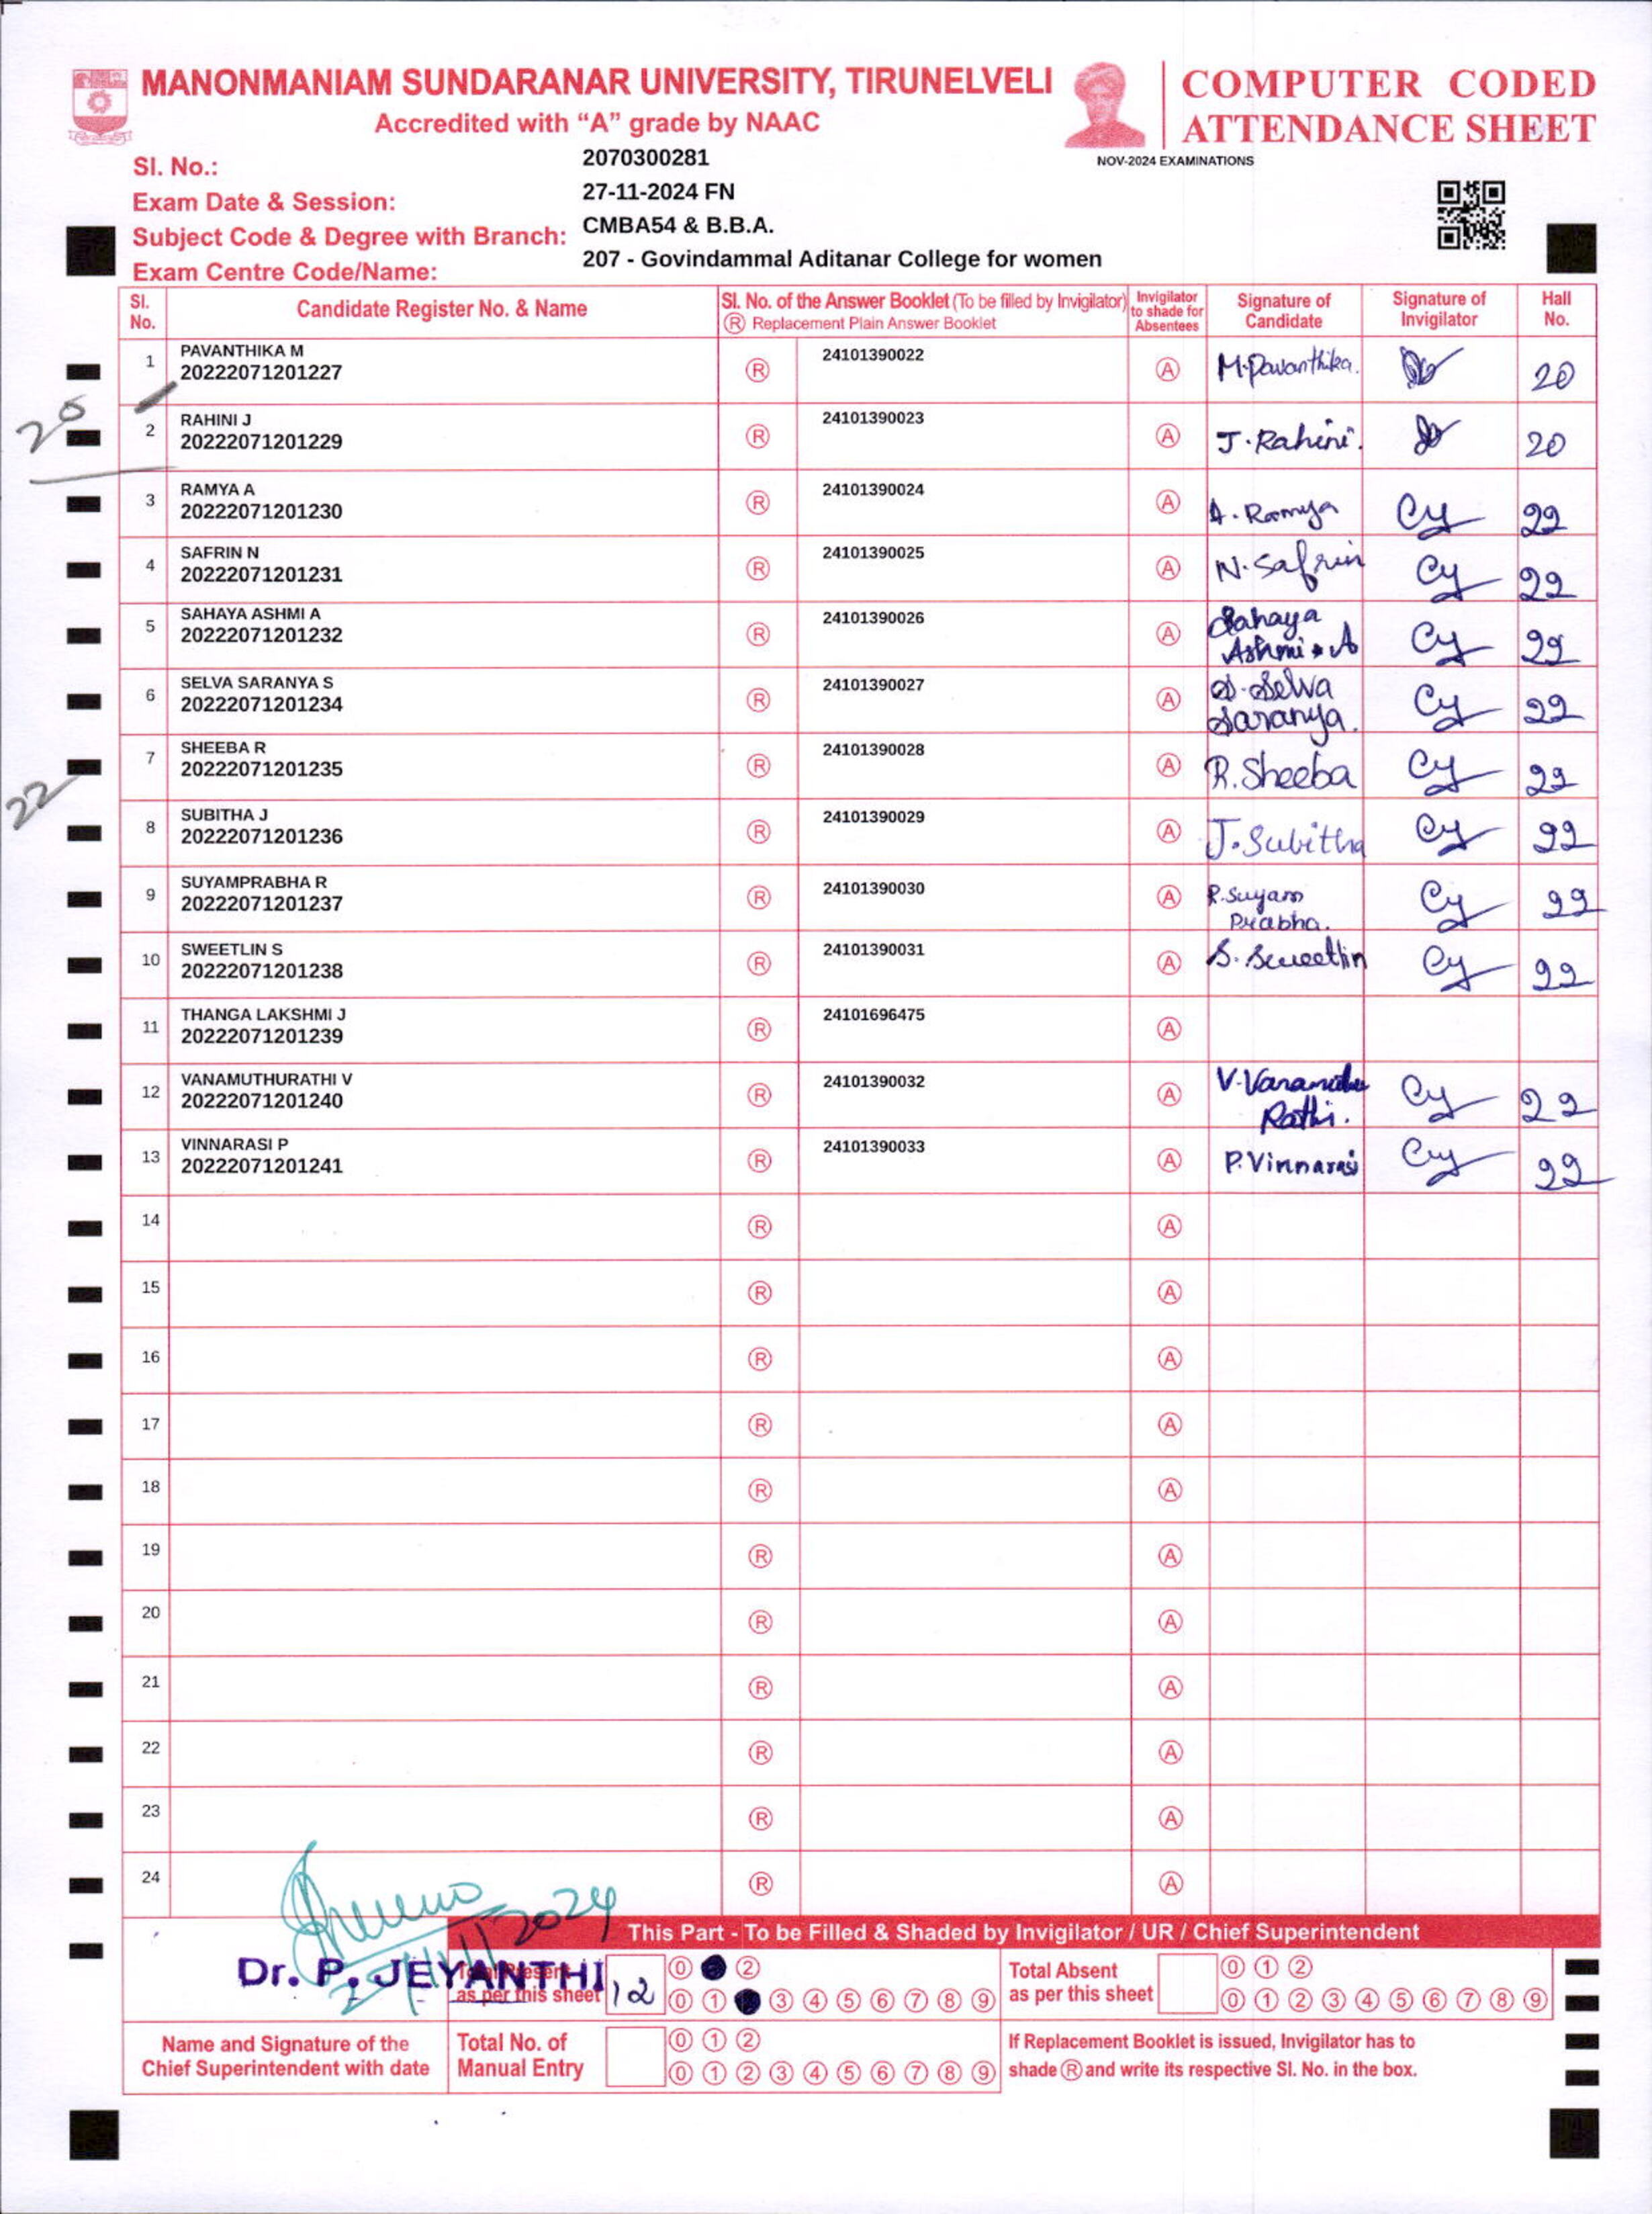 MANONMANIAM SUNDARANAR UNIVERSITY, TIRUNELVELI
Accredited with “A” grade by NAAC
COMPUTER CODED
ATTENDANCE SHEET
NOV-2024 EXAMINATIONS
Sl. No.: 2070300281
Exam Date & Session: 27-11-2024 FN
Subject Code & Degree with Branch: CMBA54 & B.B.A.
Exam Centre Code/Name: 207 - Govindammal Aditanar College for women
Sl. No. Candidate Register No. & Name Sl. No. of the Answer Booklet (To be filled by Invigilator) Ⓡ Replacement Plain Answer Booklet Invigilator to shade for Absentees Signature of Candidate Signature of Invigilator Hall No.
1 PAVANTHIKA M 20222071201227 Ⓡ 24101390022 Ⓐ M.Pavanthika. 20
20
2 RAHINI J 20222071201229 Ⓡ 24101390023 Ⓐ J.Rahini. 20
3 RAMYA A 20222071201230 Ⓡ 24101390024 Ⓐ A.Ramya Cy 22
4 SAFRIN N 20222071201231 Ⓡ 24101390025 Ⓐ N.Safrin Cy 22
5 SAHAYA ASHMI A 20222071201232 Ⓡ 24101390026 Ⓐ Sahaya Ashmi.A Cy 22
6 SELVA SARANYA S 20222071201234 Ⓡ 24101390027 Ⓐ S.Selva Saranya. Cy 22
7 SHEEBA R 20222071201235 Ⓡ 24101390028 Ⓐ R.Sheeba Cy 22
22
8 SUBITHA J 20222071201236 Ⓡ 24101390029 Ⓐ J.Subitha Cy 22
9 SUYAMPRABHA R 20222071201237 Ⓡ 24101390030 Ⓐ R.Suyam Prabha. Cy 22
10 SWEETLIN S 20222071201238 Ⓡ 24101390031 Ⓐ S.Sweetlin Cy 22
11 THANGA LAKSHMI J 20222071201239 Ⓡ 24101696475 Ⓐ
12 VANAMUTHURATHI V 20222071201240 Ⓡ 24101390032 Ⓐ V.Vanamuthu Rathi. Cy 22
13 VINNARASI P 20222071201241 Ⓡ 24101390033 Ⓐ P.Vinnarasi Cy 22
14 Ⓡ Ⓐ
15 Ⓡ Ⓐ
16 Ⓡ Ⓐ
17 Ⓡ Ⓐ
18 Ⓡ Ⓐ
19 Ⓡ Ⓐ
20 Ⓡ Ⓐ
21 Ⓡ Ⓐ
22 Ⓡ Ⓐ
23 Ⓡ Ⓐ
24 Ⓡ Ⓐ
This Part - To be Filled & Shaded by Invigilator / UR / Chief Superintendent
Dr. P. JEYANTHI
Total Present as per this sheet 12
⓪ ②
⓪ ① ③ ④ ⑤ ⑥ ⑦ ⑧ ⑨
Total Absent as per this sheet
⓪ ① ②
⓪ ① ② ③ ④ ⑤ ⑥ ⑦ ⑧ ⑨
Name and Signature of the
Chief Superintendent with date
Total No. of
Manual Entry
⓪ ① ②
⓪ ① ② ③ ④ ⑤ ⑥ ⑦ ⑧ ⑨
If Replacement Booklet is issued, Invigilator has to
shade Ⓡ and write its respective Sl. No. in the box.